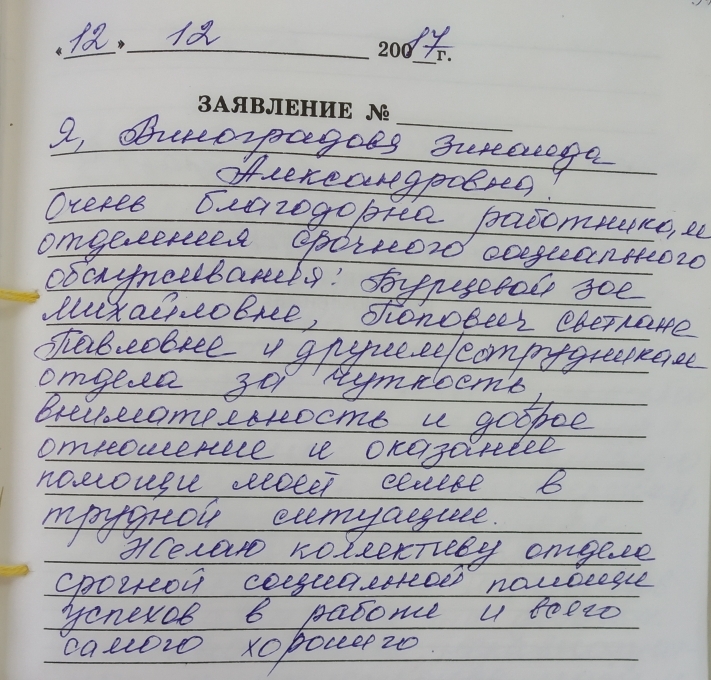 «12» 12 20017г.
ЗАЯВЛЕНИЕ №
Я, Виноградова Зинаида
Александровна!
Очень благодорна работникам
отделения срочного социального
обслуживания: Бурцевой Зое
Михайловне, Попович Светлане
Павловне и другим сотрудникам
отдела за чуткость,
внимательность и доброе
отношение и оказание
помощи моей семье в
трудной ситуации.
Желаю коллективу отдела
срочной социальной помощи
успехов в работе и всего
самого хорошего.